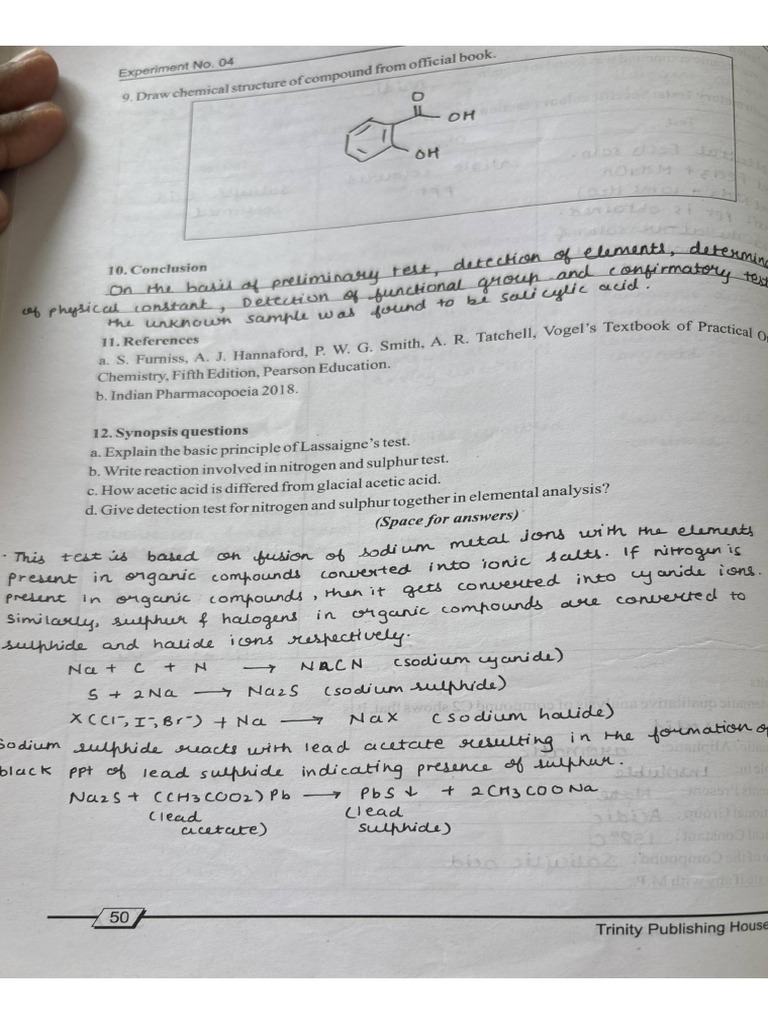 Experiment No. 04
9. Draw chemical structure of compound from official book.
O
OH
OH
10. Conclusion
On the basis of preliminary test, detection of elements, determin
of physical constant, Detection of functional group and confirmatory test
the unknown sample was found to be salicylic acid.
11. References
a. S. Furniss, A. J. Hannaford, P. W. G. Smith, A. R. Tatchell, Vogel's Textbook of Practical O
Chemistry, Fifth Edition, Pearson Education.
b. Indian Pharmacopoeia 2018.
12. Synopsis questions
a. Explain the basic principle of Lassaigne's test.
b. Write reaction involved in nitrogen and sulphur test.
c. How acetic acid is differed from glacial acetic acid.
d. Give detection test for nitrogen and sulphur together in elemental analysis?
(Space for answers)
This test is based on fusion of sodium metal ions with the elements
present in organic compounds converted into ionic salts. If nitrogen is
present in organic compounds, then it gets converted into cyanide ions.
Similarly, sulphur & halogens in organic compounds are converted to
sulphide and halide ions respectively.
Na + C + N → NaCN (sodium cyanide)
S + 2Na → Na2S (sodium sulphide)
X (Cl-, I-, Br-) + Na → NaX (sodium halide)
Sodium sulphide reacts with lead acetate resulting in the formation of
black ppt of lead sulphide indicating presence of sulphur.
Na2S + (CH3COO2) Pb → PbS ↓ + 2CH3COONa
(lead acetate) (lead sulphide)
50
Trinity Publishing House